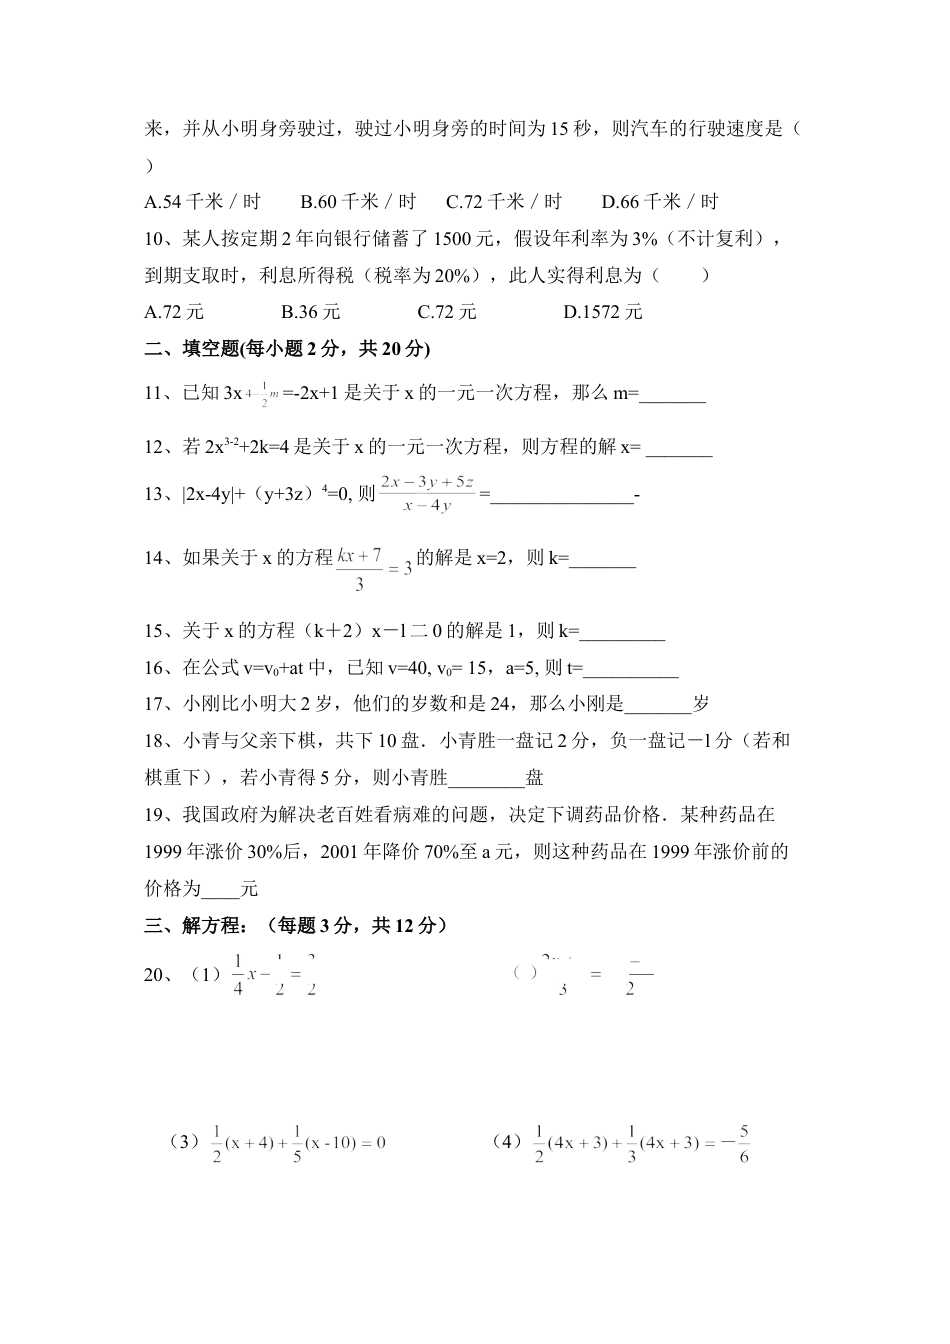 来，并从小明身旁驶过，驶过小明身旁的时间为 15 秒，则汽车的行驶速度是（
）
A.54 千米／时 B.60 千米／时 C.72 千米／时 D.66 千米／时
10、某人按定期 2 年向银行储蓄了 1500 元，假设年利率为 3%（不计复利），
到期支取时，利息所得税（税率为 20%），此人实得利息为（ ）
A.72 元 B.36 元 C.72 元 D.1572 元
二、填空题(每小题 2 分，共 20 分)
11、已知 3x^{4-\frac{1}{2}m}=-2x+1 是关于 x 的一元一次方程，那么 m=_______
12、若 2x^{3-2}+2k=4 是关于 x 的一元一次方程，则方程的解 x= _______
13、|2x-4y|+（y+3z）^4=0, 则 \frac{2x-3y+5z}{x-4y} =_______________-
14、如果关于 x 的方程 \frac{kx+7}{3}=3 的解是 x=2，则 k=_______
15、关于 x 的方程（k＋2）x－l 二 0 的解是 1，则 k=_________
16、在公式 v=v₀+at 中，已知 v=40, v₀= 15，a=5, 则 t=__________
17、小刚比小明大 2 岁，他们的岁数和是 24，那么小刚是_______岁
18、小青与父亲下棋，共下 10 盘．小青胜一盘记 2 分，负一盘记－l 分（若和
棋重下），若小青得 5 分，则小青胜________盘
19、我国政府为解决老百姓看病难的问题，决定下调药品价格．某种药品在
1999 年涨价 30%后，2001 年降价 70%至 a 元，则这种药品在 1999 年涨价前的
价格为____元
三、解方程：（每题 3 分，共 12 分）
20、（1）\frac{1}{4}x-\frac{1}{2}= （ ） =
（3）\frac{1}{2}(x+4)+\frac{1}{5}(x-10)=0 （4）\frac{1}{2}(4x+3)+\frac{1}{3}(4x+3)=-\frac{5}{6}